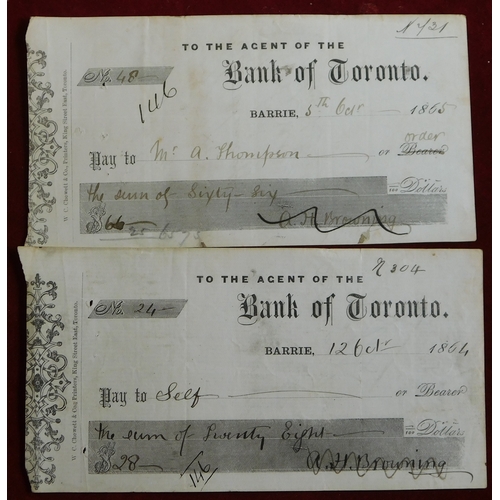 N/21
TO THE AGENT OF THE
No. 48
Bank of Toronto.
146
BARRIE, 5th Octr 1865
order
Pay to Mr A. Thompson or Bearer
the sum of Sixty six Dollars
$66
A. H. Browning
W. C. Chewett & Co., Printers, King Street East, Toronto.
N304
TO THE AGENT OF THE
No. 24
Bank of Toronto.
BARRIE, 12 Octr 1864
Pay to Self or Bearer
the sum of Twenty Eight Dollars
$28
146
A. H. Browning
W. C. Chewett & Co., Printers, King Street East, Toronto.